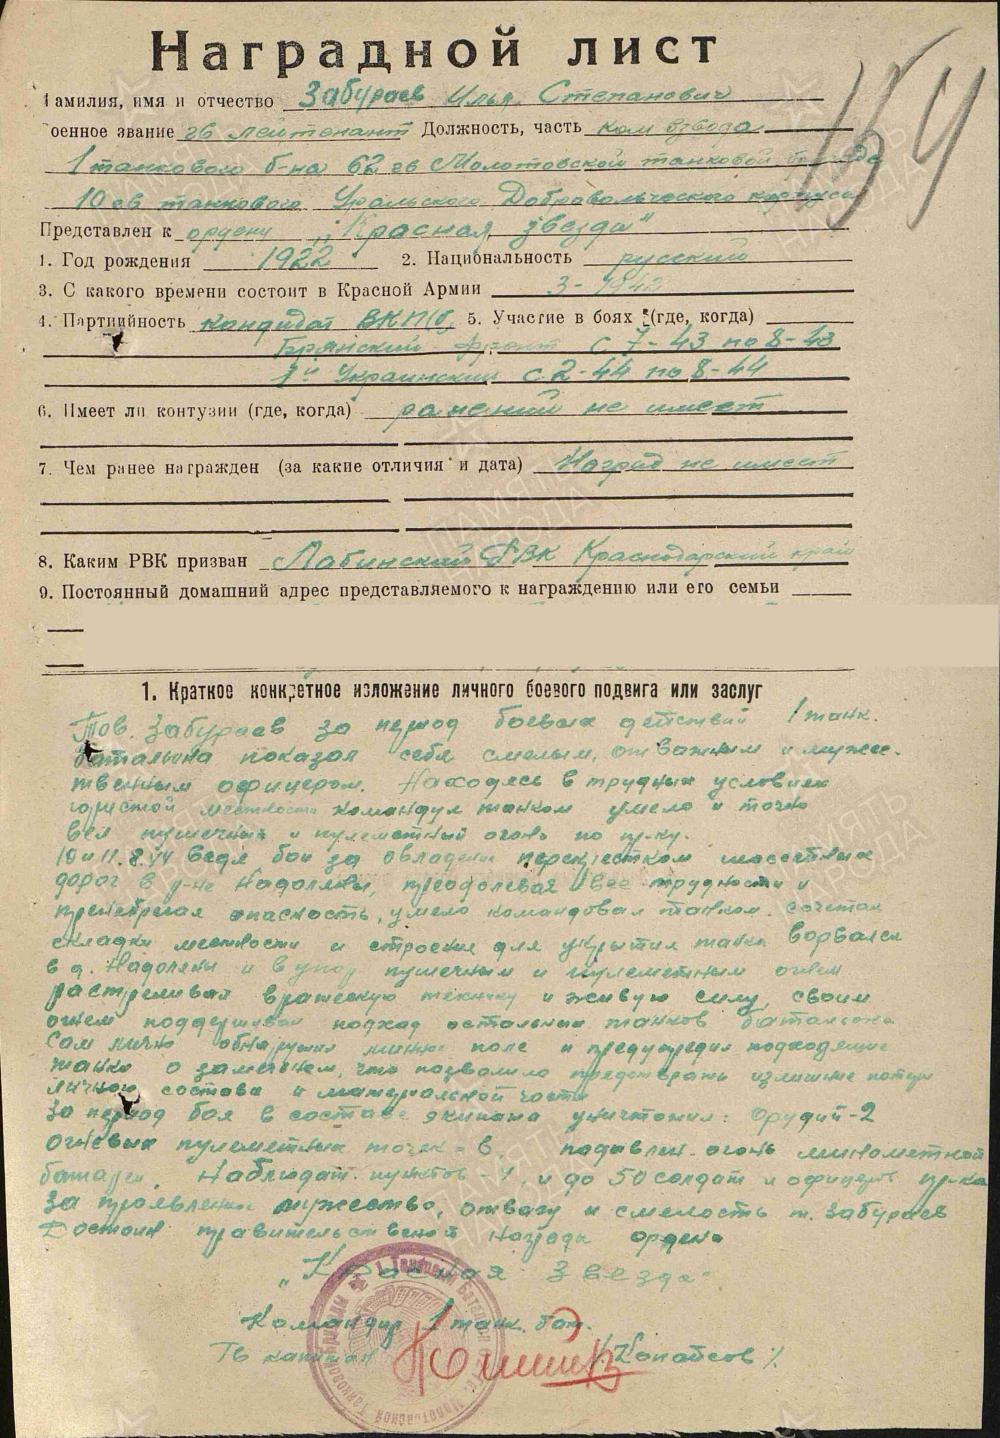 Наградной лист
159
амилия, имя и отчество Забураев Илья Степанович
оенное звание гв лейтенант Должность, часть ком взвода
1 танкового б-на 62 гв Молотовской танковой бригады
10 гв танкового Уральского Добровольческого корпуса
Представлен к ордену „Красная звезда"
1. Год рождения 1922 2. Национальность русский
3. С какого времени состоит в Красной Армии 3-1942
4. Партийность кандидат ВКП(б) 5. Участие в боях (где, когда)
Брянский фронт с 7-43 по 8-43
1й Украинский с 2-44 по 8-44
6. Имеет ли контузии (где, когда) ранений не имеет
7. Чем ранее награжден (за какие отличия и дата) Наград не имеет
8. Каким РВК призван Лабинский РВК Краснодарский край
9. Постоянный домашний адрес представляемого к награждению или его семьи
1. Краткое конкретное изложение личного боевого подвига или заслуг
Тов. Забураев за период боевых действий 1 танк.
батальона показал себя смелым, отважным и мужес-
твенным офицером. Находясь в трудных условиях
гористой местности командуя танком умело и точно
вел пушечный и пулеметный огонь по пр-ку.
10 и 11.8.44 ведя бои за овладение перекрестком шоссейных
дорог в р-не Надоляны, преодолевая все трудности и
пренебрегая опасность, умело командовал танком. сочетая
складки местности и строения для укрытия танка ворвался
в д. Надоляны и в упор пушечным и пулеметным огнем
растреливал вражескую технику и живую силу, своим
огнем поддерживал подход остальных танков батальона
Сам лично обнаружил минное поле и предупредил подходящие
танки о замеченом, что позволило предотвратить излишние потери
личного состава и материальной части
За период боя в составе экипажа уничтожил: Орудий-2
огневых пулеметных точек - 6, подавлен огонь минометной
батареи. Наблюдат. пунктов - 1, и до 50 солдат и офицеров пр-ка
За проявленное мужество, отвагу и смелость т. Забураев
Достоин правительственной награды ордена
„Красная Звезда"
Командир 1 танк. бат.
Гв капитан